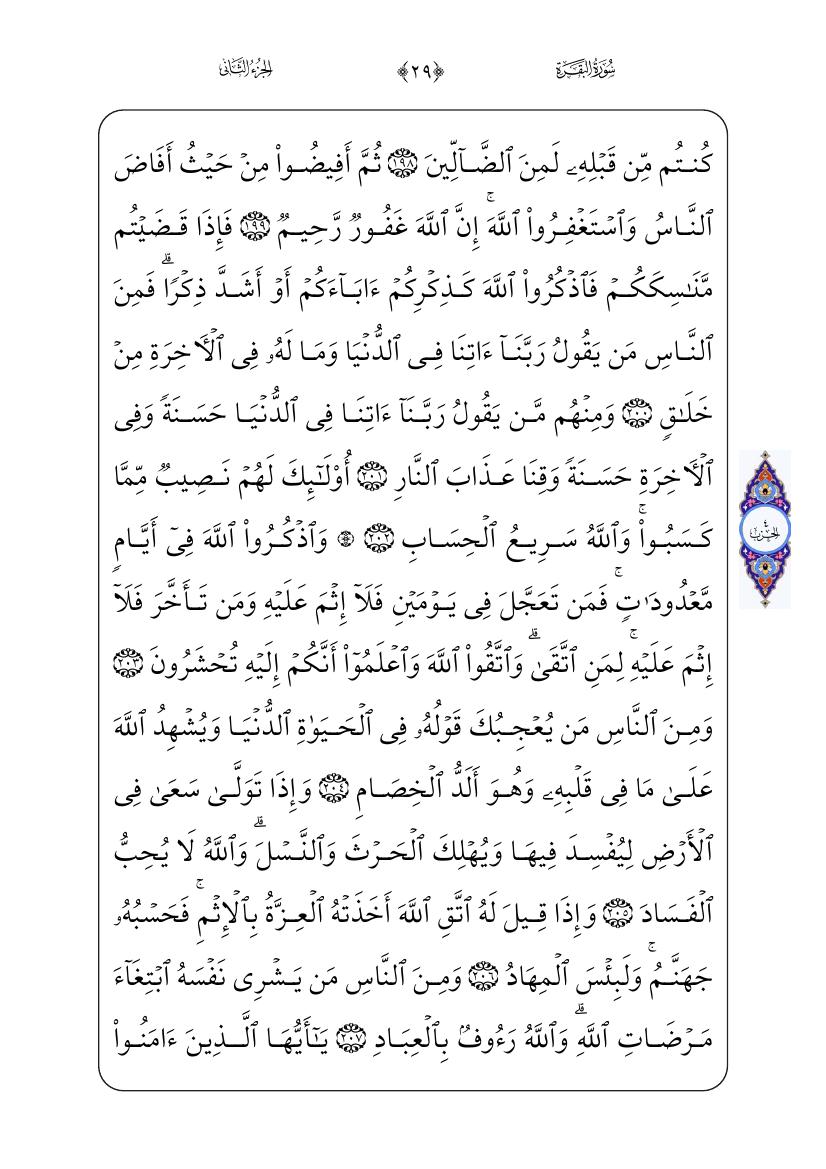 سُورَةُ البَقَرَةِ ﴿٢٩﴾ الجزءُ الثَّانِي
كُنتُم مِّن قَبۡلِهِۦ لَمِنَ ٱلضَّآلِّينَ ١٩٨ ثُمَّ أَفِيضُواْ مِنۡ حَيۡثُ أَفَاضَ
ٱلنَّاسُ وَٱسۡتَغۡفِرُواْ ٱللَّهَۚ إِنَّ ٱللَّهَ غَفُورٞ رَّحِيمٞ ١٩٩ فَإِذَا قَضَيۡتُم
مَّنَٰسِكَكُمۡ فَٱذۡكُرُواْ ٱللَّهَ كَذِكۡرِكُمۡ ءَابَآءَكُمۡ أَوۡ أَشَدَّ ذِكۡرٗاۗ فَمِنَ
ٱلنَّاسِ مَن يَقُولُ رَبَّنَآ ءَاتِنَا فِي ٱلدُّنۡيَا وَمَا لَهُۥ فِي ٱلۡأٓخِرَةِ مِنۡ
خَلَٰقٖ ٢٠٠ وَمِنۡهُم مَّن يَقُولُ رَبَّنَآ ءَاتِنَا فِي ٱلدُّنۡيَا حَسَنَةٗ وَفِي
ٱلۡأٓخِرَةِ حَسَنَةٗ وَقِنَا عَذَابَ ٱلنَّارِ ٢٠١ أُوْلَٰٓئِكَ لَهُمۡ نَصِيبٞ مِّمَّا
كَسَبُواْۚ وَٱللَّهُ سَرِيعُ ٱلۡحِسَابِ ٢٠٢ ۞ وَٱذۡكُرُواْ ٱللَّهَ فِيٓ أَيَّامٖ
مَّعۡدُودَٰتٖۚ فَمَن تَعَجَّلَ فِي يَوۡمَيۡنِ فَلَآ إِثۡمَ عَلَيۡهِ وَمَن تَأَخَّرَ فَلَآ
إِثۡمَ عَلَيۡهِۚ لِمَنِ ٱتَّقَىٰۗ وَٱتَّقُواْ ٱللَّهَ وَٱعۡلَمُوٓاْ أَنَّكُمۡ إِلَيۡهِ تُحۡشَرُونَ ٢٠٣
وَمِنَ ٱلنَّاسِ مَن يُعۡجِبُكَ قَوۡلُهُۥ فِي ٱلۡحَيَوٰةِ ٱلدُّنۡيَا وَيُشۡهِدُ ٱللَّهَ
عَلَىٰ مَا فِي قَلۡبِهِۦ وَهُوَ أَلَدُّ ٱلۡخِصَامِ ٢٠٤ وَإِذَا تَوَلَّىٰ سَعَىٰ فِي
ٱلۡأَرۡضِ لِيُفۡسِدَ فِيهَا وَيُهۡلِكَ ٱلۡحَرۡثَ وَٱلنَّسۡلَۗ وَٱللَّهُ لَا يُحِبُّ
ٱلۡفَسَادَ ٢٠٥ وَإِذَا قِيلَ لَهُ ٱتَّقِ ٱللَّهَ أَخَذَتۡهُ ٱلۡعِزَّةُ بِٱلۡإِثۡمِۚ فَحَسۡبُهُۥ
جَهَنَّمُۚ وَلَبِئۡسَ ٱلۡمِهَادُ ٢٠٦ وَمِنَ ٱلنَّاسِ مَن يَشۡرِي نَفۡسَهُ ٱبۡتِغَآءَ
مَرۡضَاتِ ٱللَّهِۗ وَٱللَّهُ رَءُوفُۢ بِٱلۡعِبَادِ ٢٠٧ يَٰٓأَيُّهَا ٱلَّذِينَ ءَامَنُواْ
٤
الحزب